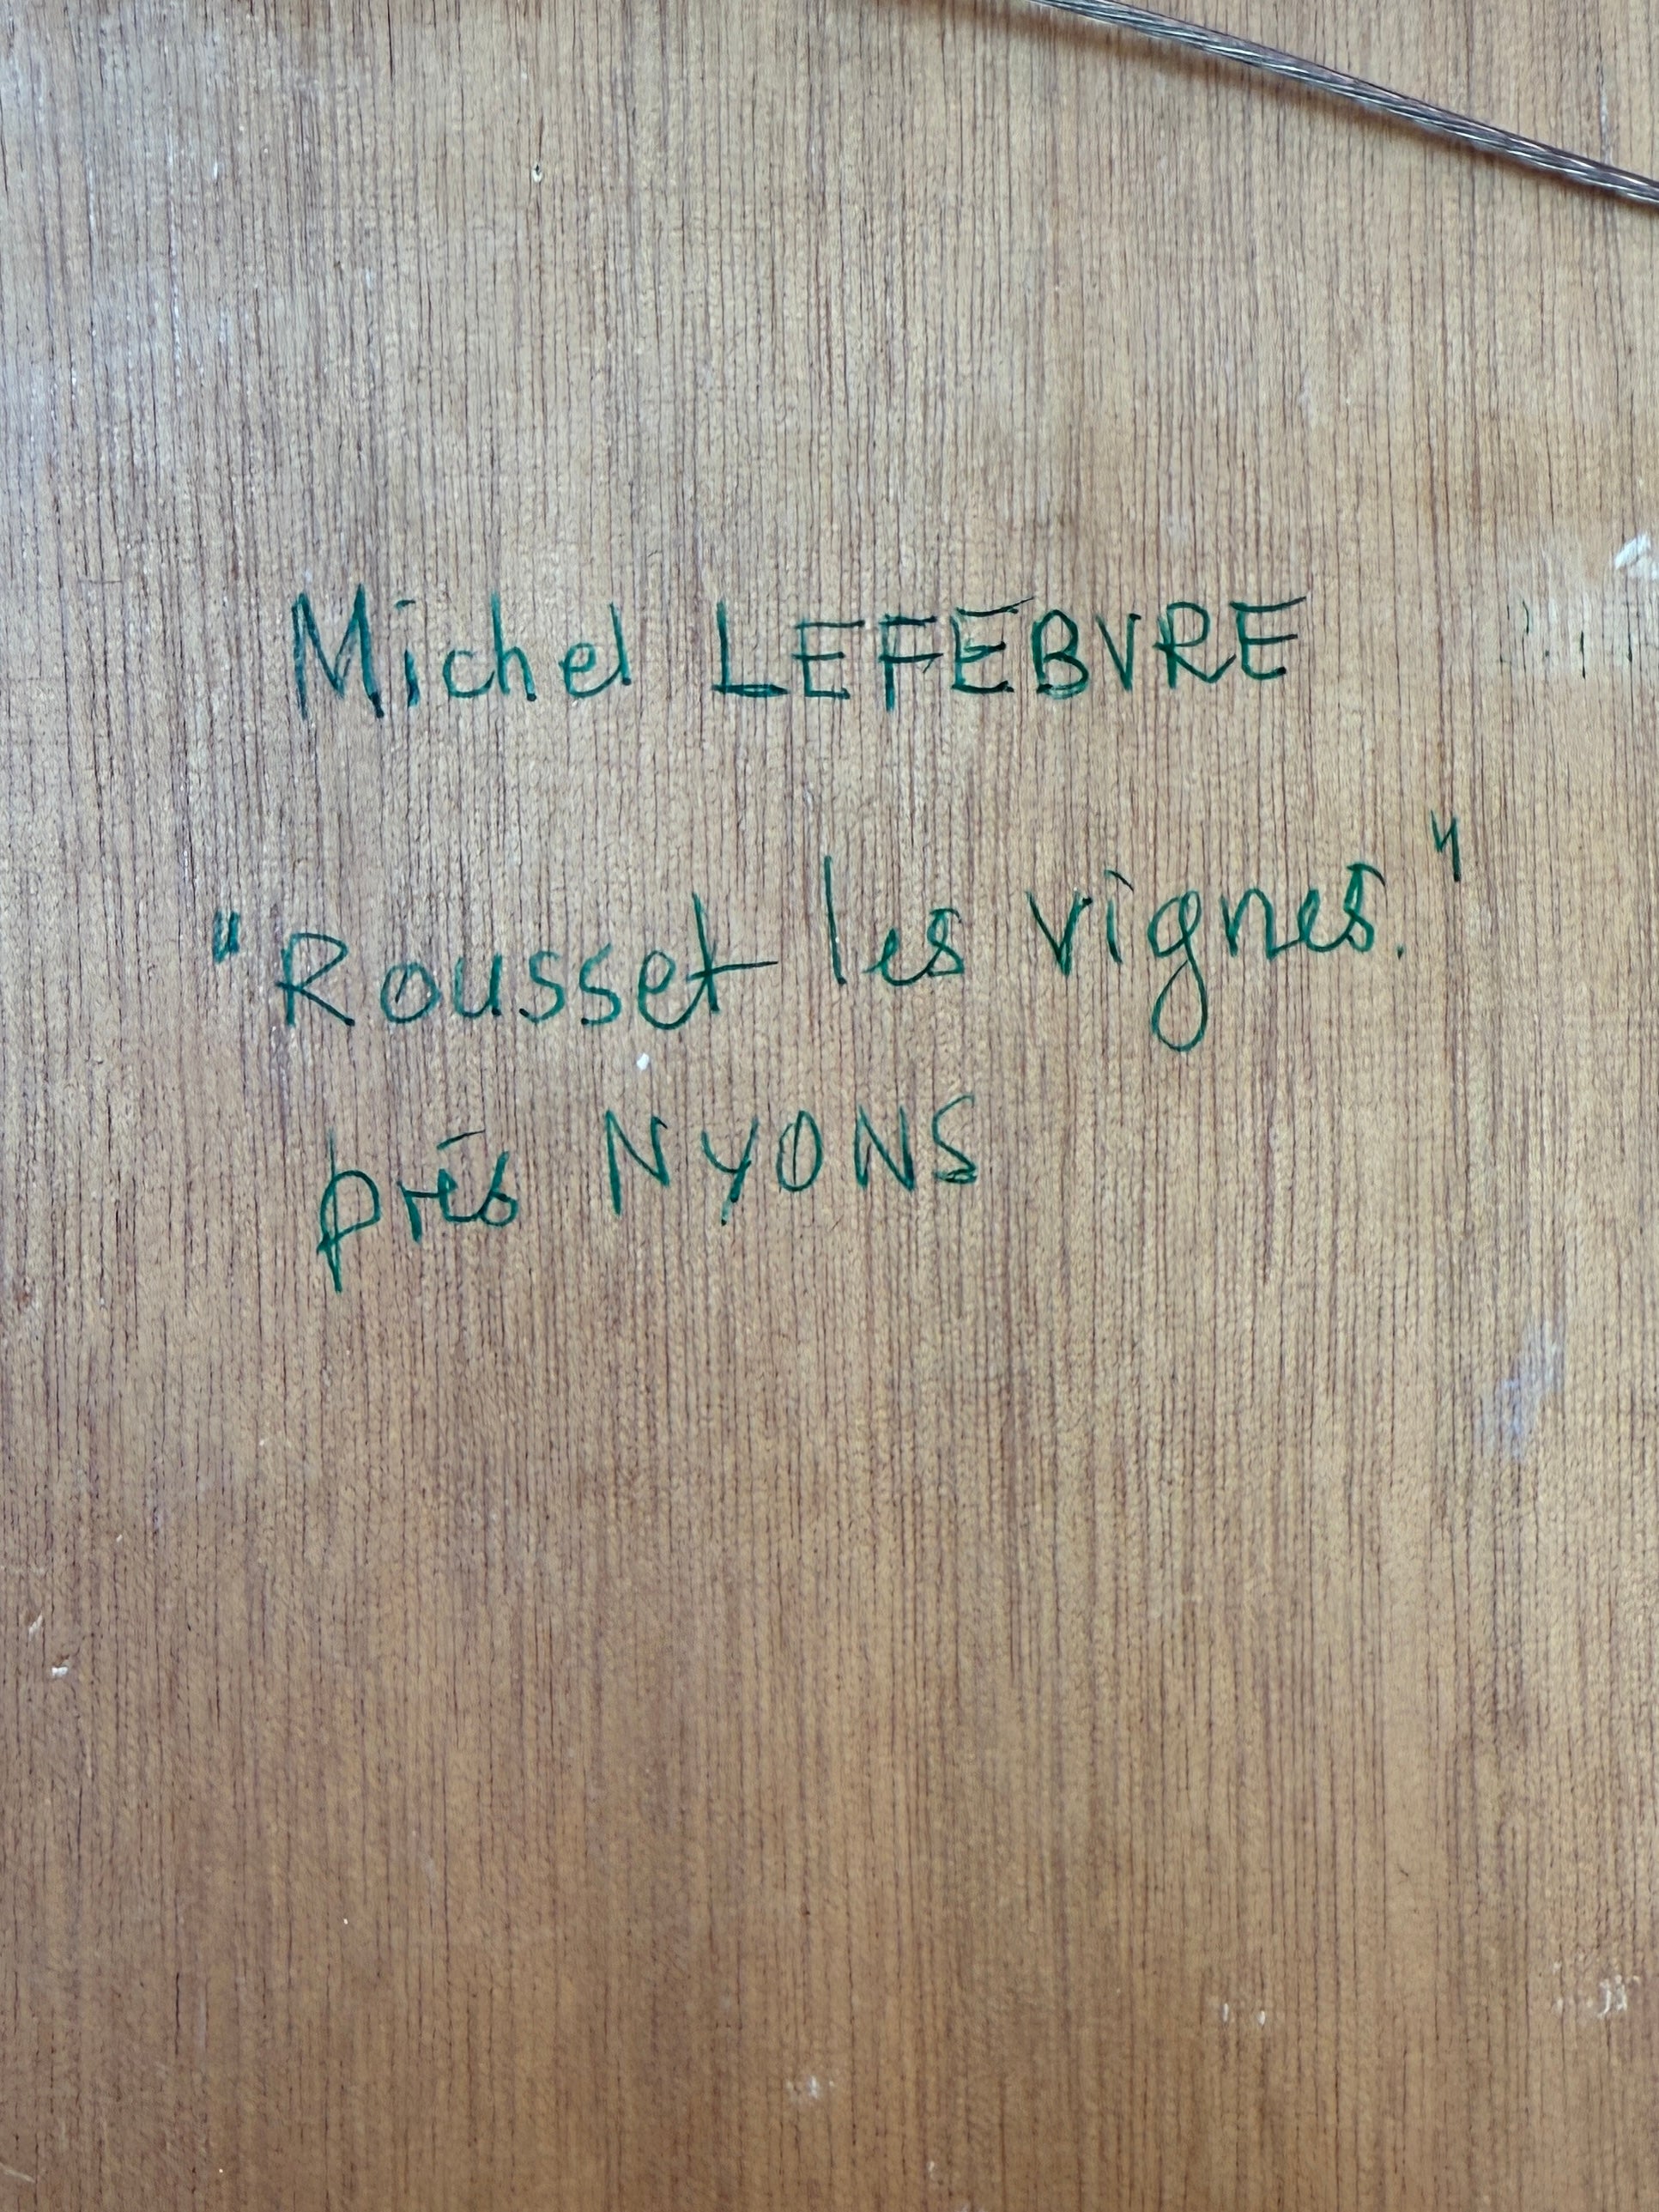 Michel LEFEBVRE
"Rousset les vignes."
près NYONS